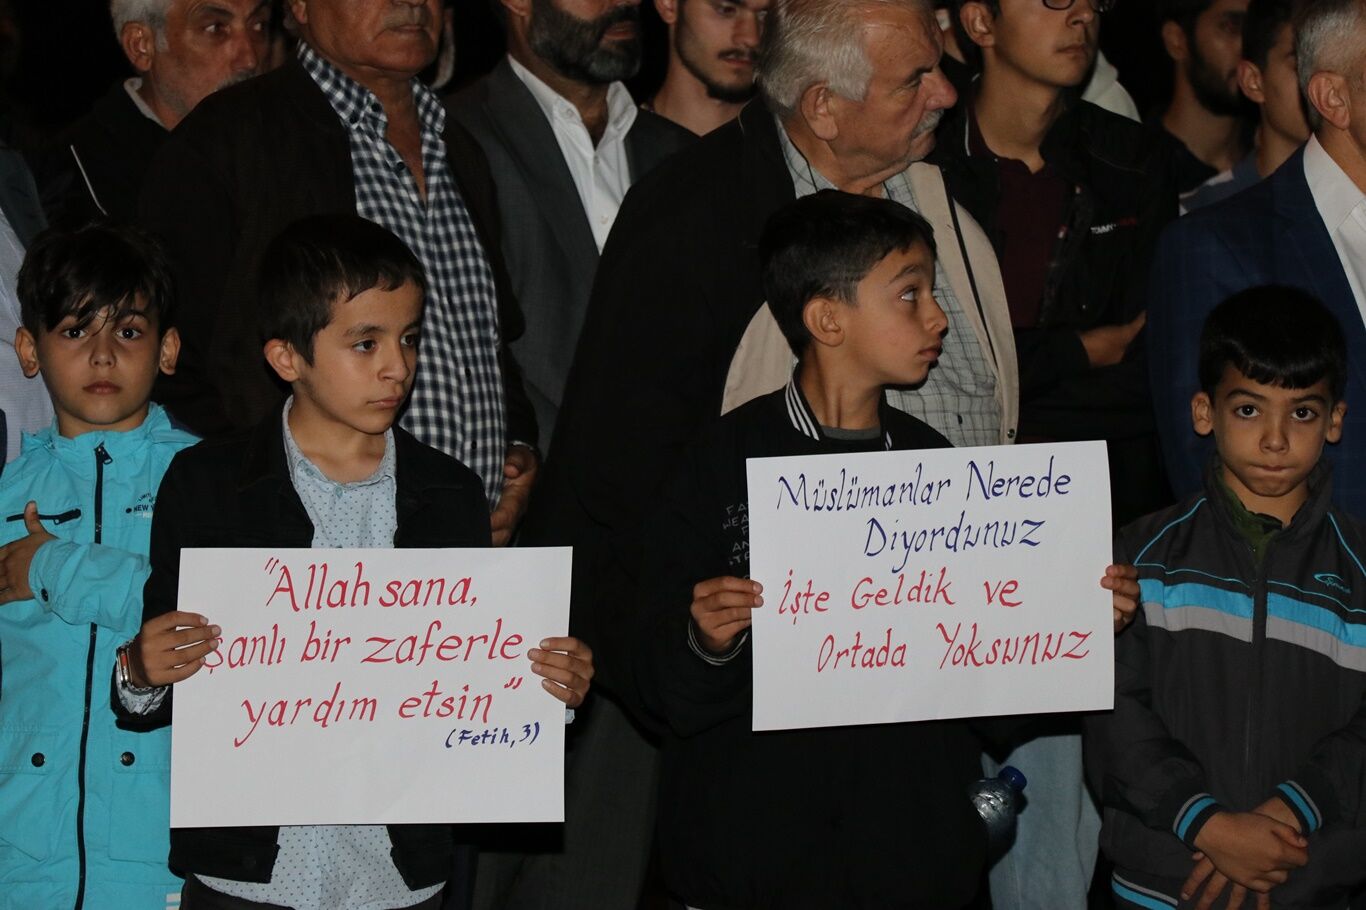 "Allah sana,
şanlı bir zaferle
yardım etsin"
(Fetih, 3)
Müslümanlar Nerede
Diyordunuz
İşte Geldik ve
Ortada Yoksunuz
TOMMY
NEW